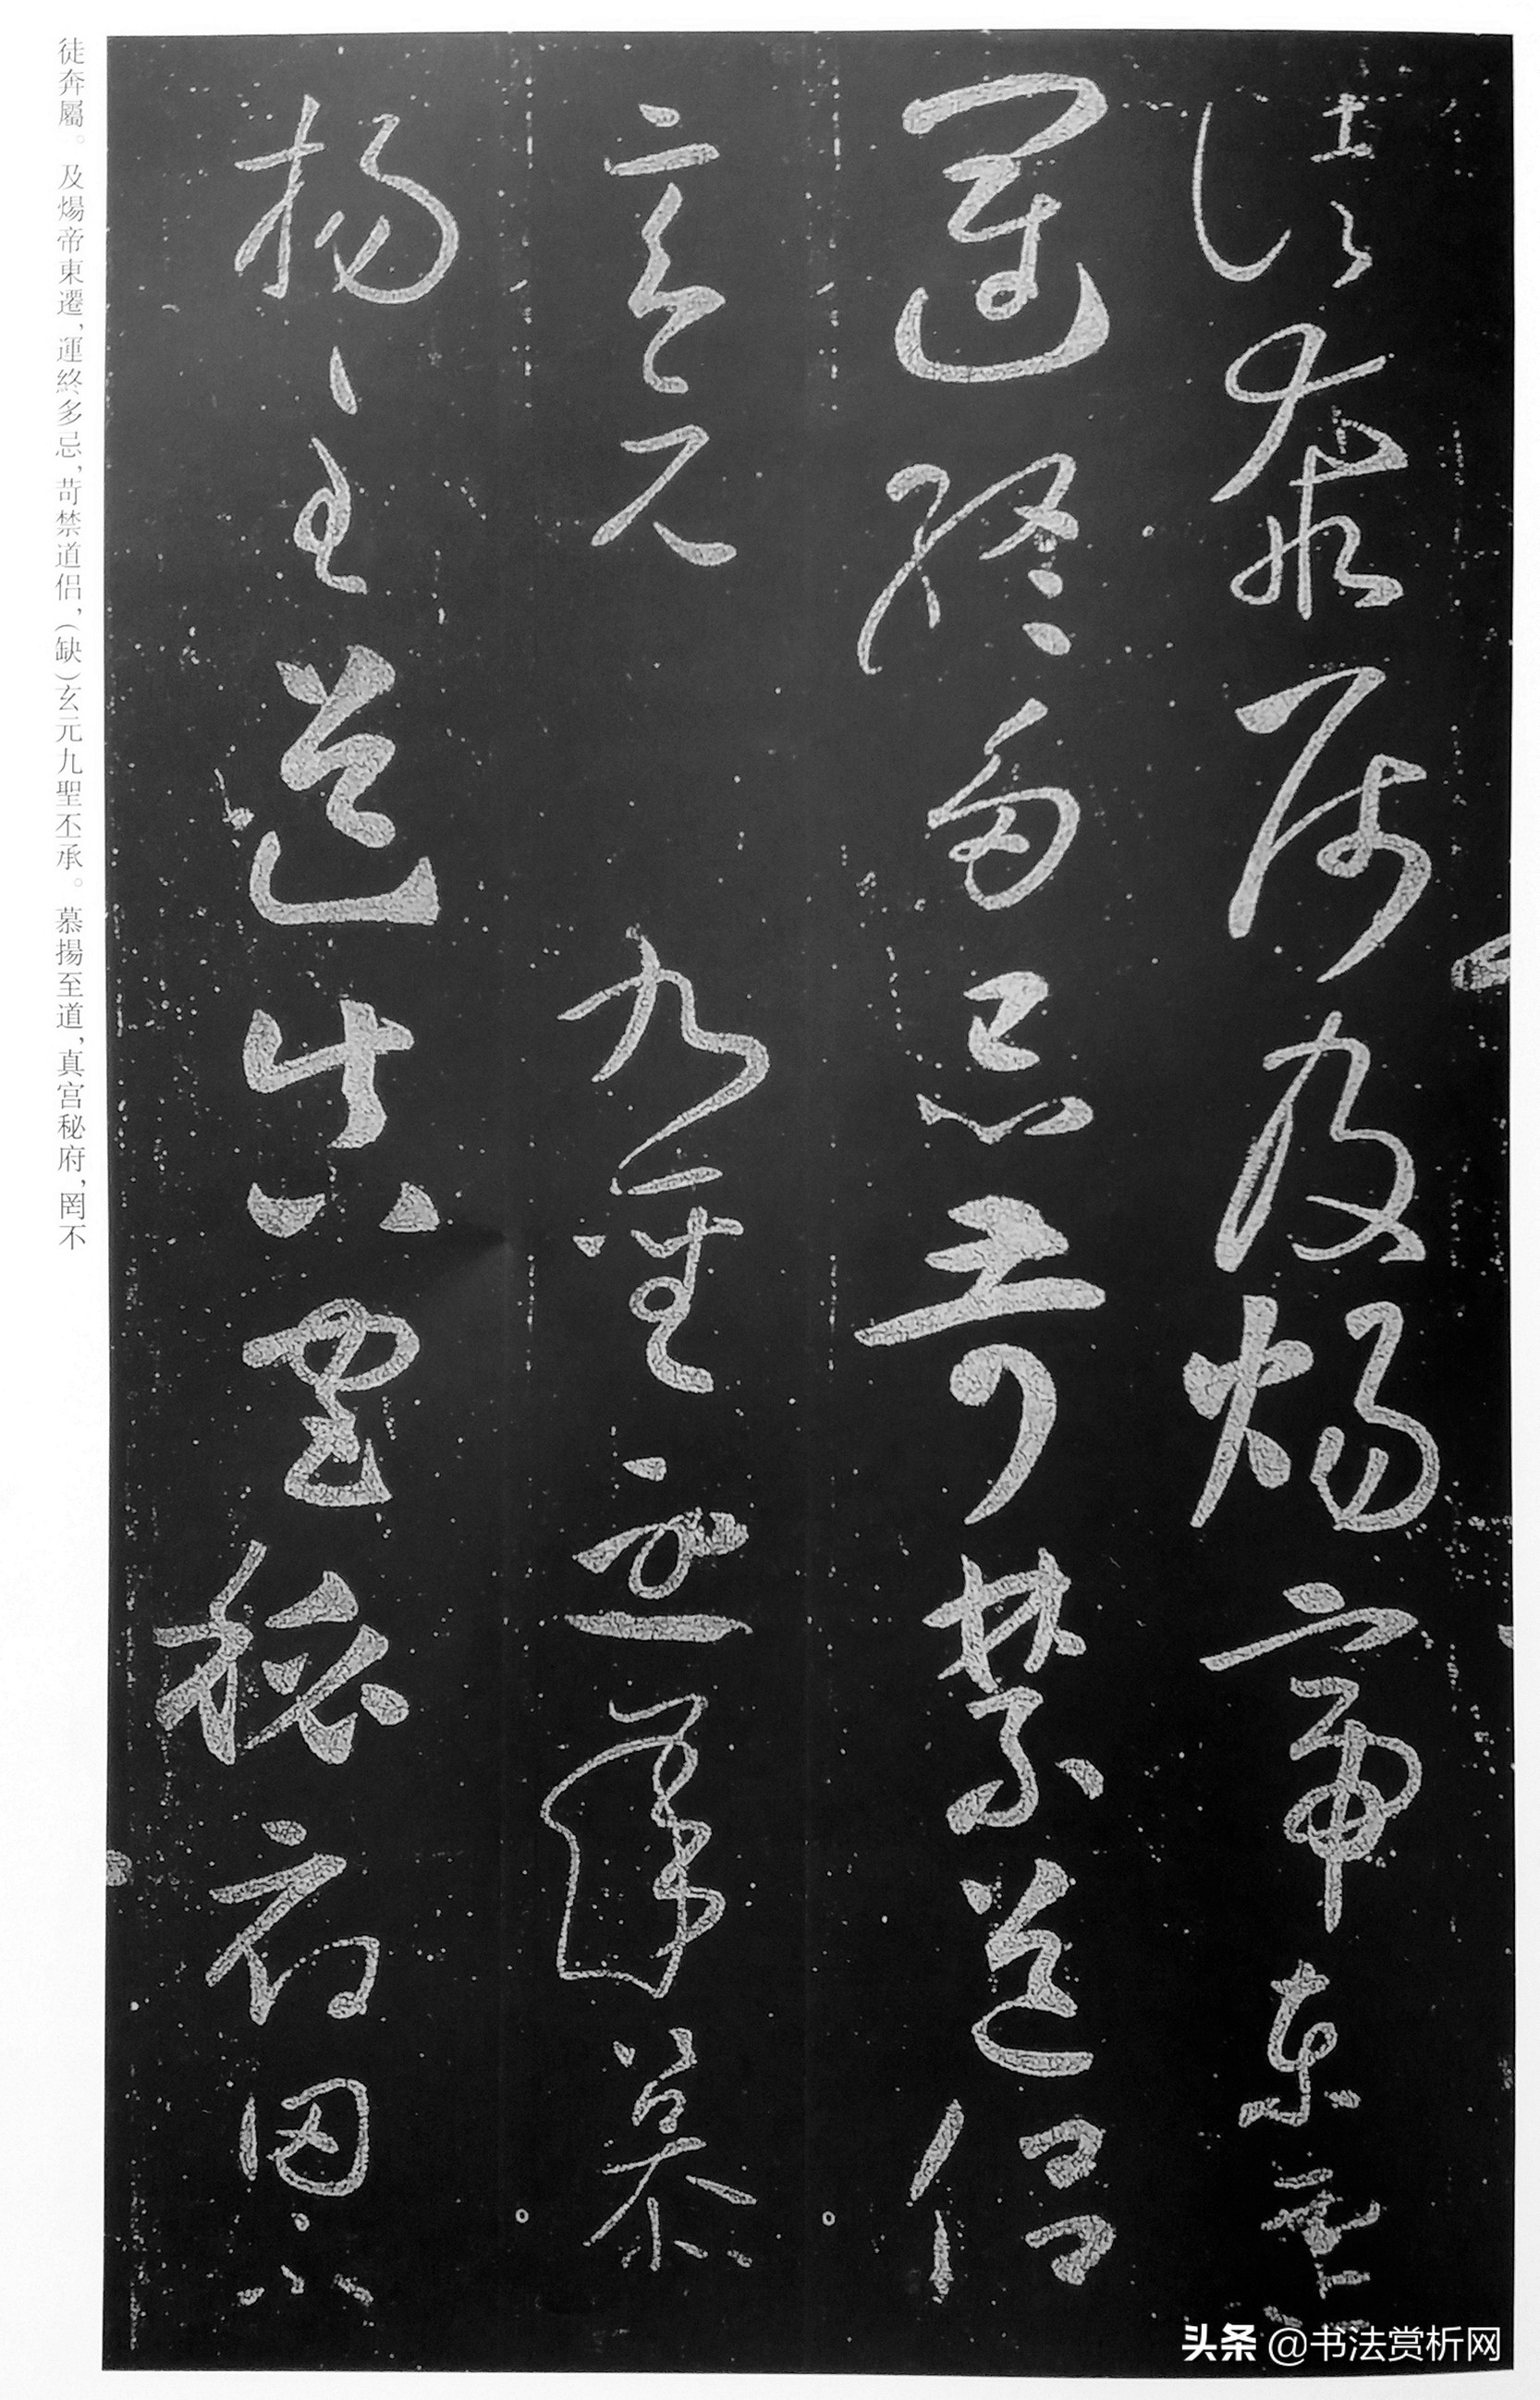 徒奔屬及煬帝東遷
運終多忌苛禁道侶
玄元九聖丕承慕
揚至道真宫秘府罔不
徒奔屬。及煬帝東遷，運終多忌，苛禁道侶，（缺）玄元九聖丕承。慕揚至道，真宫秘府，罔不
头条 @书法赏析网